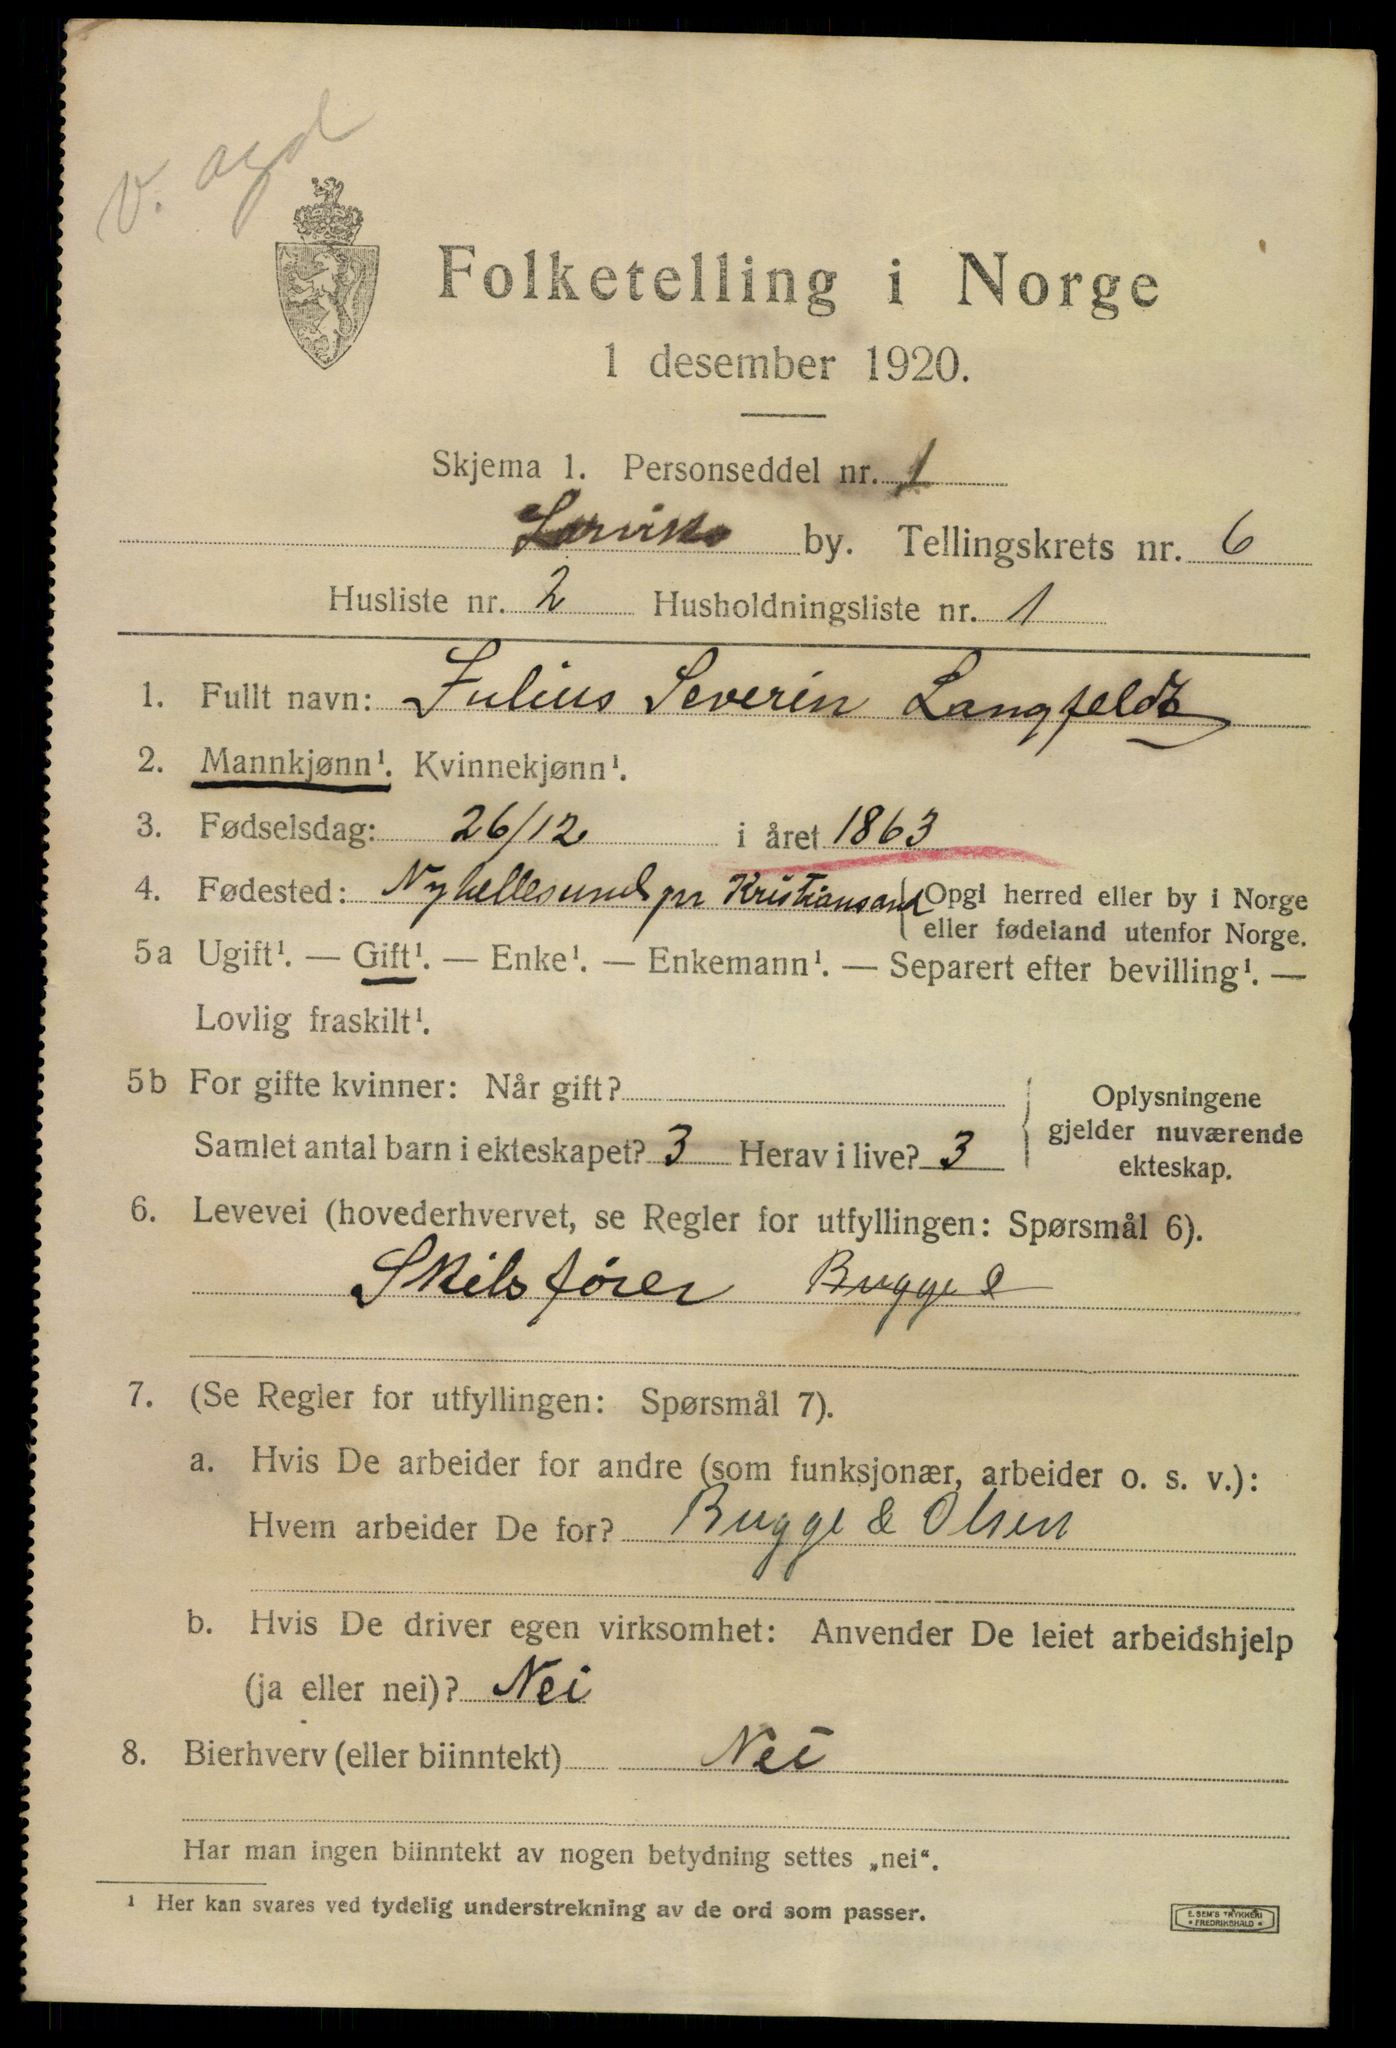 V. agd
Folketelling i Norge
1 desember 1920.
Skjema 1. Personseddel nr. 1
Larviks by. Tellingskrets nr. 6
Husliste nr. 2 Husholdningsliste nr. 1
1. Fullt navn: Julius Severin Langfeldt
2. Mannkjønn¹. Kvinnekjønn¹.
3. Fødselsdag: 26/12 i året 1863
4. Fødested: Nyhellesund pr Kristiansand { Opgi herred eller by i Norge
eller fødeland utenfor Norge.
5a Ugift¹. — Gift¹. — Enke¹. — Enkemann¹. — Separert efter bevilling¹. —
Lovlig fraskilt¹.
5b For gifte kvinner: Når gift?
Samlet antal barn i ekteskapet? 3 Herav i live? 3
Oplysningene
gjelder nuværende
ekteskap.
6. Levevei (hovederhvervet, se Regler for utfyllingen: Spørsmål 6).
Skibsfører Bugge &
7. (Se Regler for utfyllingen: Spørsmål 7).
a. Hvis De arbeider for andre (som funksjonær, arbeider o. s. v.):
Hvem arbeider De for? Bugge & Olsen
b. Hvis De driver egen virksomhet: Anvender De leiet arbeidshjelp
(ja eller nei)? Nei
8. Bierhverv (eller biinntekt) Nei
Har man ingen biinntekt av nogen betydning settes „nei“.
¹ Her kan svares ved tydelig understrekning av de ord som passer.
E. SEM'S TRYKKERI
• FREDRIKSHALD •